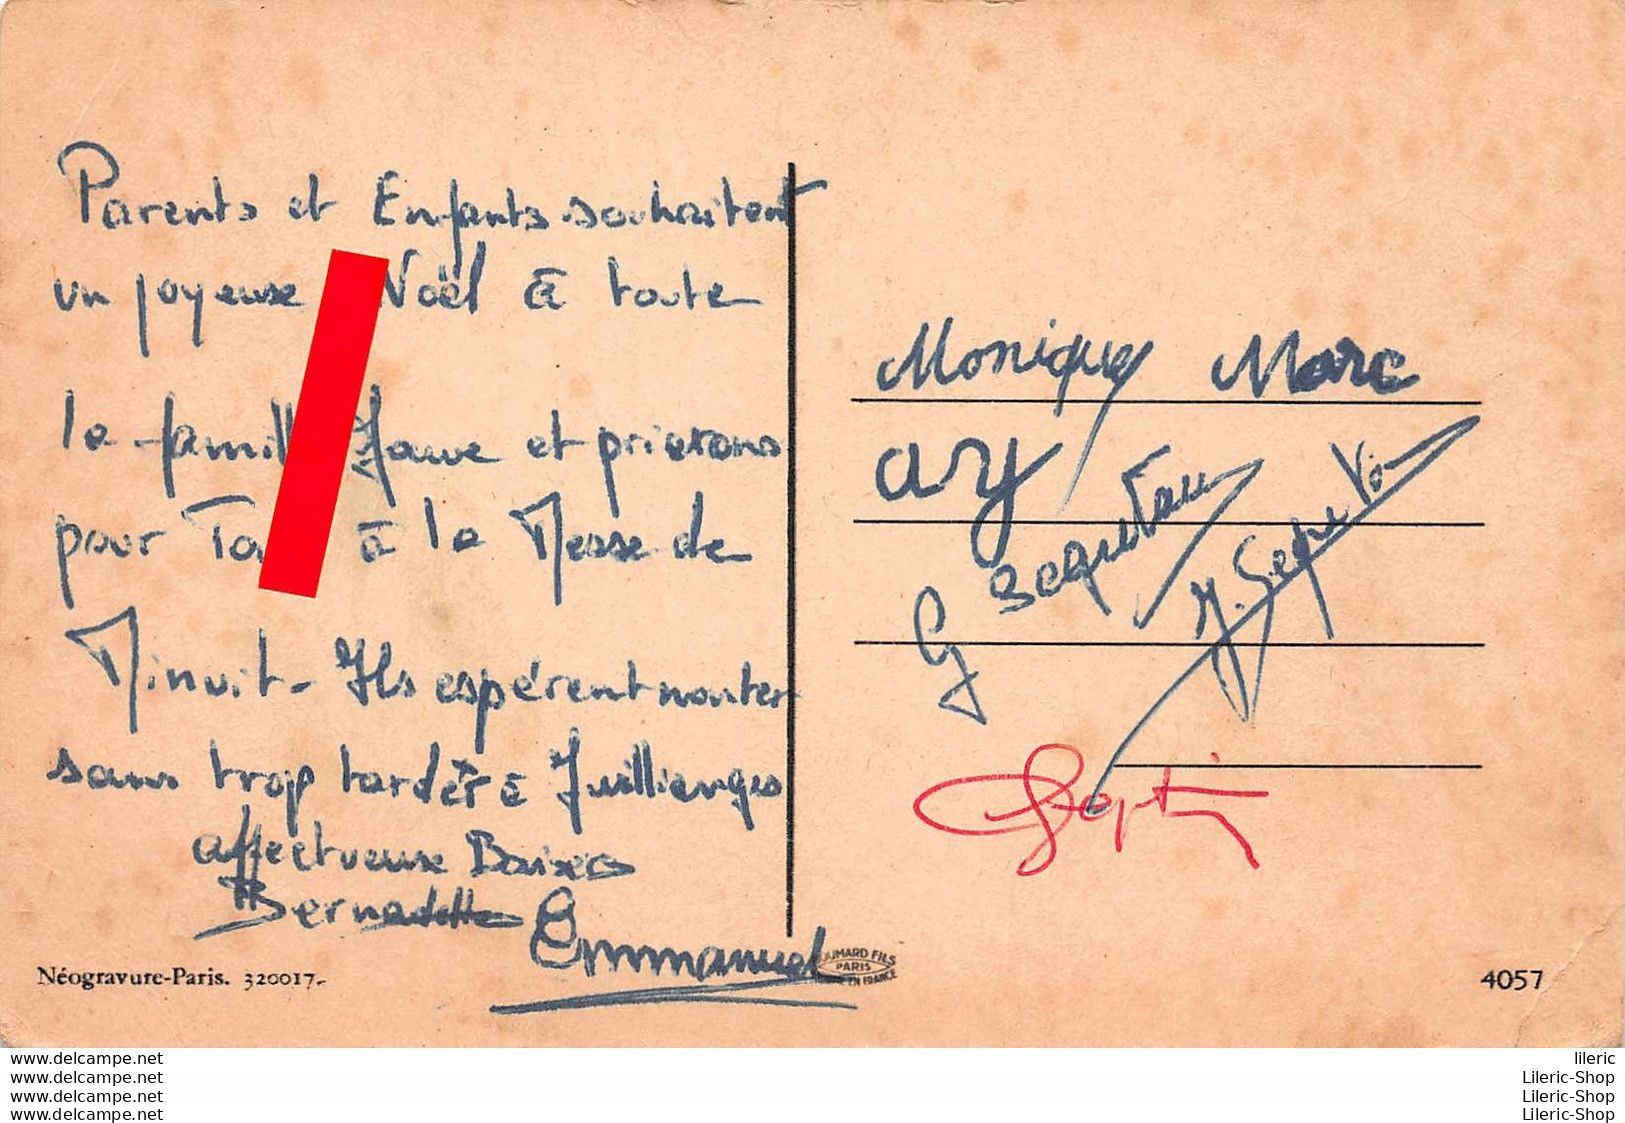 Parents et Enfants souhaitent
un joyeuse Noël à toute
la famill et prierons
pour à la Messe de
Minuit - Ils espèrent monter
sans trop tarder à Juillianges
affectueuse Baisers
Bernadette Emmanuel
Monique Marc
ay
G
Néogravure-Paris. 320017.
OUMARD FILS
PARIS
EN FRANCE
4057
www.delcampe.net
www.delcampe.net
www.delcampe.net
www.delcampe.net
lileric
Lileric-Shop
Lileric-Shop
Lileric-Shop